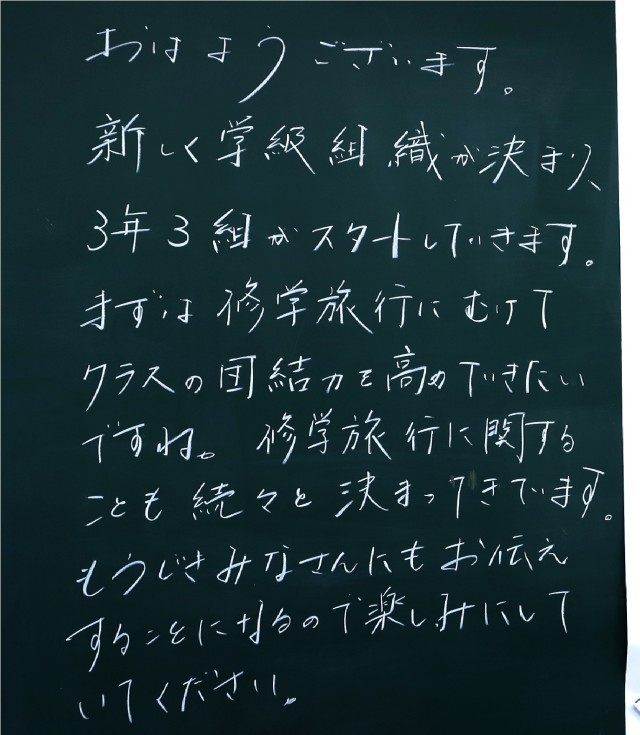 おはようございます。
新しく学級組織が決まり、
3年3組がスタートしていきます。
まずは修学旅行にむけて
クラスの団結力を高めていきたい
ですね。修学旅行に関する
ことも続々と決まってきています。
もうじきみなさんにもお伝え
することになるので楽しみにして
いてください。